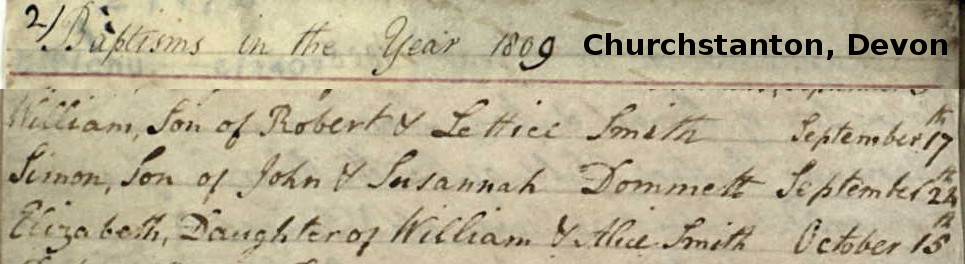 2) Baptisms in the Year 1809 Churchstanton, Devon
William, Son of Robert & Lettice Smith September 17th
Simon, Son of John & Susannah Dommett September 24th
Elizabeth, Daughter of William & Alice Smith October 15th